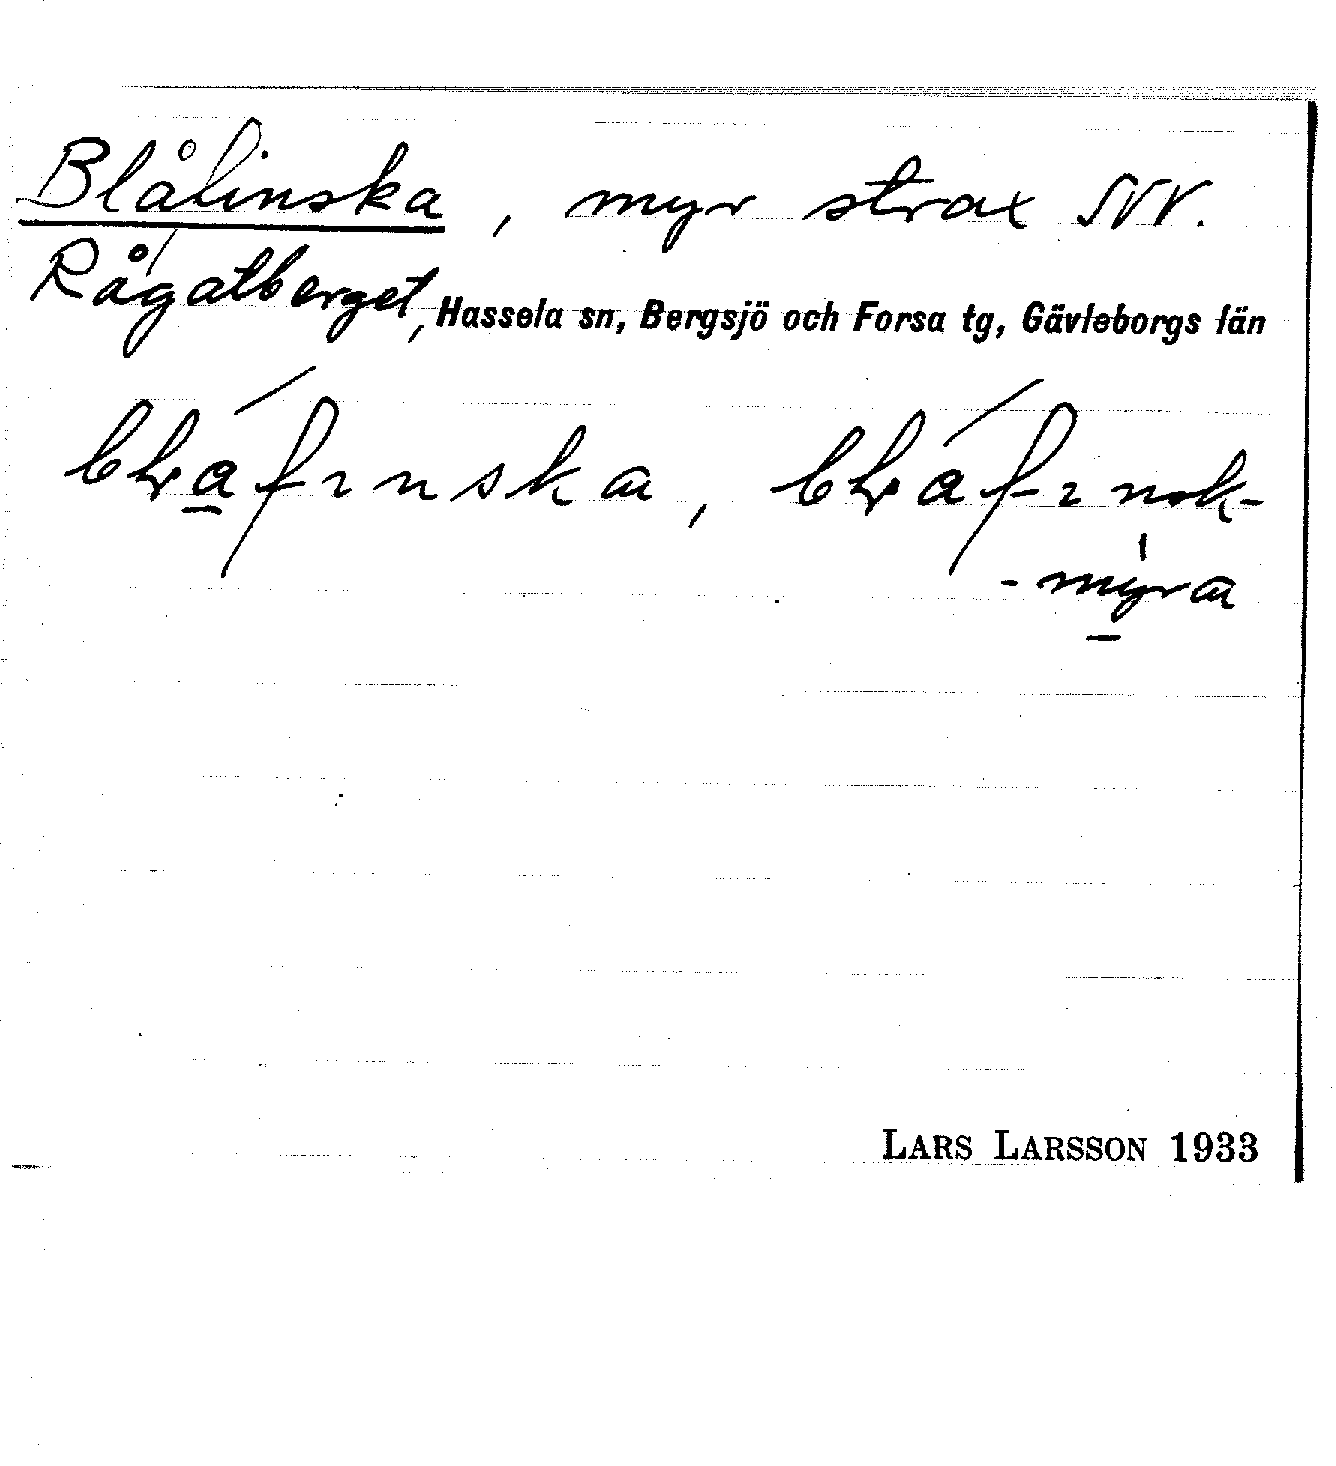 Blåfinska, myr strax SVV.
Rågatberget, Hassela sn, Bergsjö och Forsa tg, Gävleborgs län
bḷafınska, bḷafınsk-
-myra
LARS LARSSON 1933